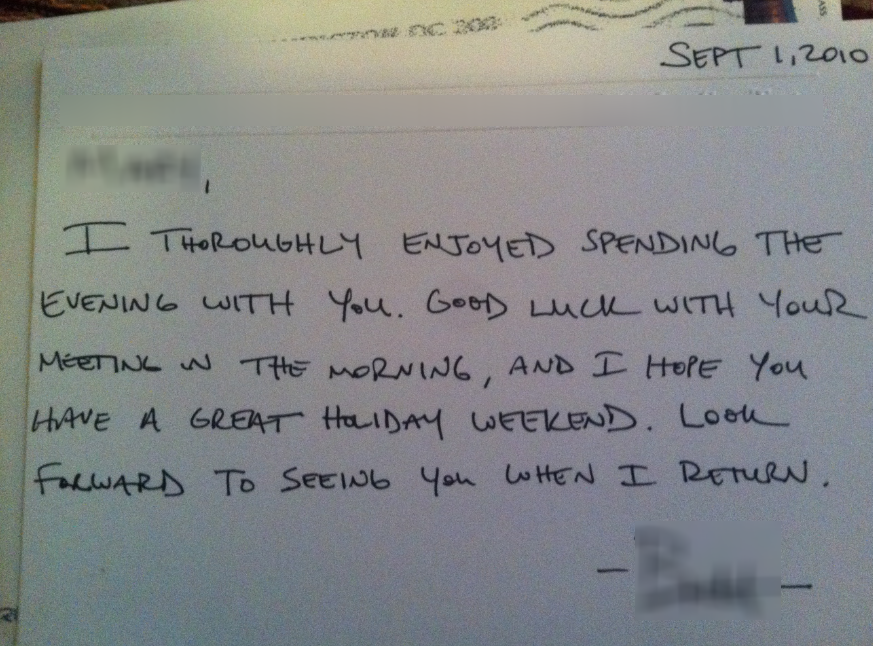 DC 200
SEPT 1, 2010
I THOROUGHLY ENJOYED SPENDING THE
EVENING WITH YOU. GOOD LUCK WITH YOUR
MEETING IN THE MORNING, AND I HOPE YOU
HAVE A GREAT HOLIDAY WEEKEND. LOOK
FORWARD TO SEEING YOU WHEN I RETURN.